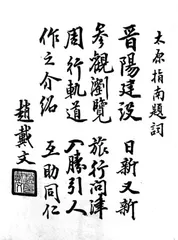 太原指南題詞
晋陽建設　日新又新
參觀瀏覽　旅行问津
周行軌道　入勝引人
作之介紹　互助同仁
趙戴文